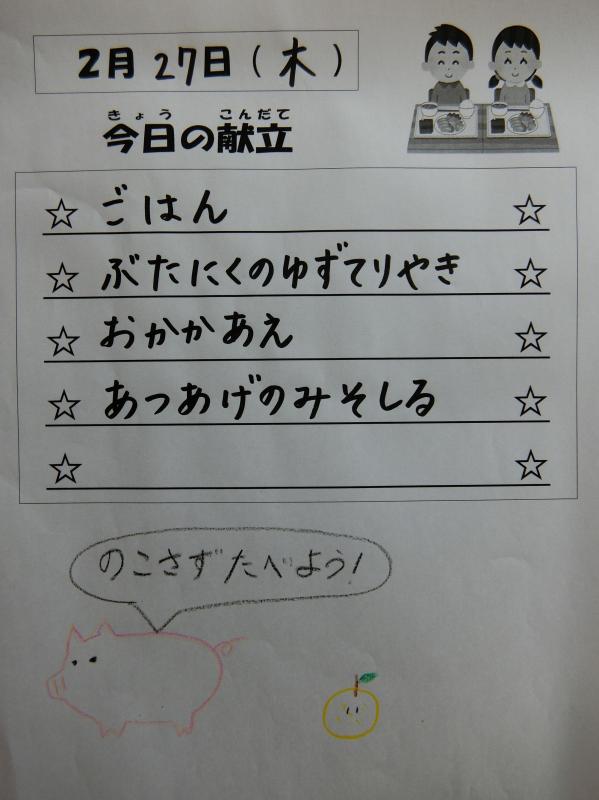 2月27日(木)
きょう こんだて
今日の献立
☆ ごはん ☆
☆ ぶたにくのゆずてりやき ☆
☆ おかかあえ ☆
☆ あつあげのみそしる ☆
☆ ☆
のこさずたべよう!